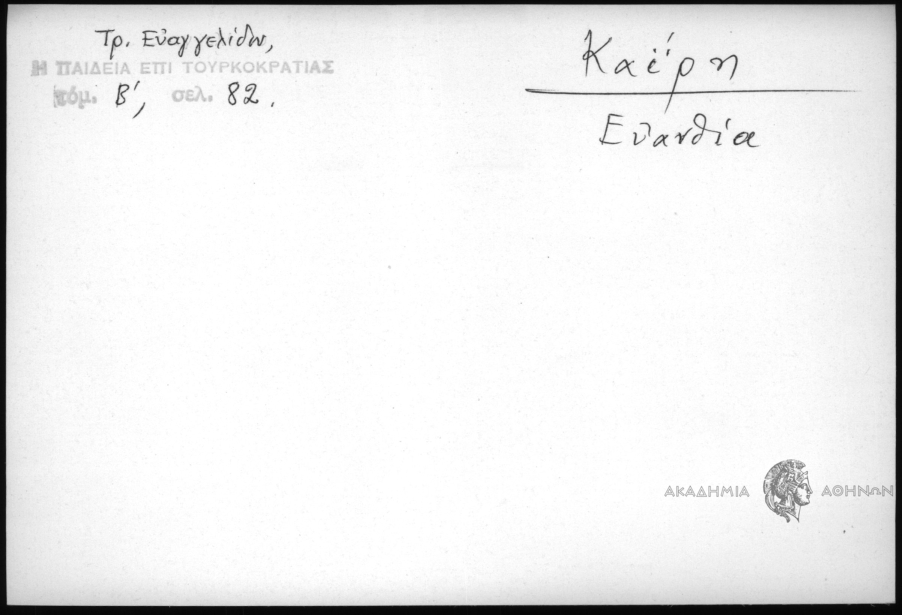 Τρ. Εὐαγγελίδου,
Η ΠΑΙΔΕΙΑ ΕΠΙ ΤΟΥΡΚΟΚΡΑΤΙΑΣ
τόμ. Β', σελ. 82.
Καΐρη
Εὐανθία
ΑΚΑΔΗΜΙΑ ΑΘΗΝΩΝ